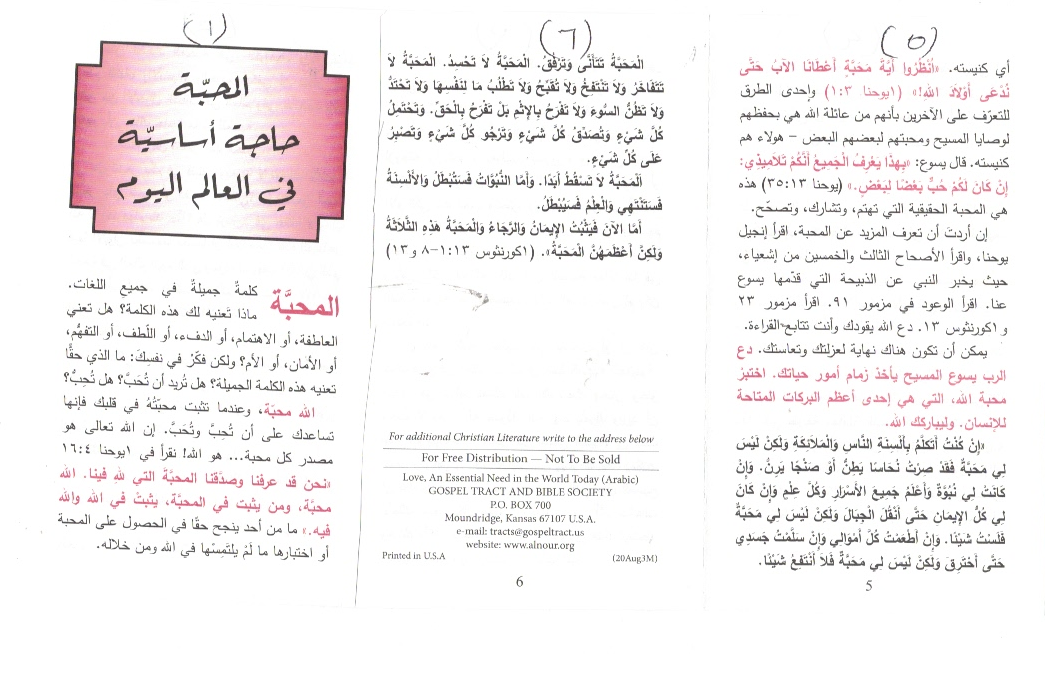 (١)
المحبّة
حاجة أساسيّة
في العالم اليوم
المحبَّة كلمةٌ جميلةٌ في جميعِ اللغات.
ماذا تَعنيه لك هذه الكلمة؟ هل تعني
العاطفة، أو الاهتمام، أو الدفء، أو اللّطف، أو التفهُّم،
أو الأمان، أو الأم؟ ولكن فكّرْ في نفسِكَ: ما الذي حقًّا
تعنيه هذه الكلمة الجميلة؟ هل تُريد أن تُحَبَّ؟ هل تُحِبُّ؟
الله محبّة، وعندما تثبت محبتُهُ في قلبك فإنها
تساعدك على أن تُحِبَّ وتُحَبَّ. إن الله تعالى هو
مصدر كل محبة... هو الله! نقرأ في ١يوحنا ١٦:٤
«نحن قد عرفنا وصدَّقنا المحبَّة التي للهِ فينا. الله
محبّة، ومن يثبت في المحبّة، يثبتْ في الله والله
فيه.» ما من أحد ينجح حقًّا في الحصول على المحبة
أو اختبارها ما لَمْ يلتَمِسْها في الله ومن خلاله.
(٦)
الْمَحَبَّةُ تَتَأَنَّى وَتَرْفُقُ. الْمَحَبَّةُ لاَ تَحْسِدُ. الْمَحَبَّةُ لاَ
تَتَفَاخَرُ وَلاَ تَنْتَفِخُ وَلاَ تُقَبِّحُ وَلاَ تَطْلُبُ مَا لِنَفْسِهَا وَلاَ تَحْتَدُّ
وَلاَ تَظُنُّ السُّوءَ وَلاَ تَفْرَحُ بِالإِثْمِ بَلْ تَفْرَحُ بِالْحَقِّ. وَتَحْتَمِلُ
كُلَّ شَيْءٍ وَتُصَدِّقُ كُلَّ شَيْءٍ وَتَرْجُو كُلَّ شَيْءٍ وَتَصْبِرُ
عَلَى كُلِّ شَيْءٍ.
اَلْمَحَبَّةُ لاَ تَسْقُطُ أَبَدًا. وَأَمَّا النُّبُوَّاتُ فَسَتُبْطَلُ وَالأَلْسِنَةُ
فَسَتَنْتَهِي وَالْعِلْمُ فَسَيُبْطَلُ.
أَمَّا الآنَ فَيَثْبُتُ الإِيمَانُ وَالرَّجَاءُ وَالْمَحَبَّةُ هَذِهِ الثَّلاَثَةُ
وَلَكِنَّ أَعْظَمَهُنَّ الْمَحَبَّةُ». (١كورنثوس ١:١٣–٨ و ١٣)
For additional Christian Literature write to the address below
For Free Distribution — Not To Be Sold
Love, An Essential Need in the World Today (Arabic)
GOSPEL TRACT AND BIBLE SOCIETY
P.O. BOX 700
Moundridge, Kansas 67107 U.S.A.
e-mail: tracts@gospeltract.us
website: www.alnour.org
Printed in U.S.A (20Aug3M)
6
(٥)
أي كنيسته. «أُنْظُرُوا أَيَّةَ مَحَبَّةٍ أَعْطَانَا الآبُ حَتَّى
نُدْعَى أَوْلاَدَ اللهِ!» (١يوحنا ١:٣) وإحدى الطرق
للتعرّف على الآخرين بأنهم من عائلة الله هي بحفظهم
لوصايا المسيح ومحبتهم لبعضهم البعض – هؤلاء هم
كنيسته. قال يسوع: «بِهَذَا يَعْرِفُ الْجَمِيعُ أَنَّكُمْ تلاَمِيذِي:
إِنْ كَانَ لَكُمْ حُبٌّ بَعْضًا لِبَعْضٍ.» (يوحنا ٣٥:١٣) هذه
هي المحبة الحقيقية التي تهتم، وتشارك، وتصحّح.
إن أردتَ أن تعرف المزيد عن المحبة، اقرأ إنجيل
يوحنا، واقرأ الأصحاح الثالث والخمسين من إشعياء،
حيث يخبر النبي عن الذبيحة التي قدّمها يسوع
عنا. اقرأ الوعود في مزمور ٩١. اقرأ مزمور ٢٣
و ١كورنثوس ١٣. دع الله يقودك وأنت تتابع القراءة.
يمكن أن تكون هناك نهاية لعزلتك وتعاستك. دع
الرب يسوع المسيح يأخذ زمام أمور حياتك. اختبرْ
محبة الله، التي هي إحدى أعظم البركات المتاحة
للإنسان. وليباركك الله.
«إِنْ كُنْتُ أَتَكَلَّمُ بِأَلْسِنَةِ النَّاسِ وَالْمَلاَئِكَةِ وَلَكِنْ لَيْسَ
لِي مَحَبَّةٌ فَقَدْ صِرْتُ نُحَاسًا يَطِنُّ أَوْ صَنْجًا يَرِنُّ. وَإِنْ
كَانَتْ لِي نُبُوَّةٌ وَأَعْلَمُ جَمِيعَ الأَسْرَارِ وَكُلَّ عِلْمٍ وَإِنْ كَانَ
لِي كُلُّ الإِيمَانِ حَتَّى أَنْقُلَ الْجِبَالَ وَلَكِنْ لَيْسَ لِي مَحَبَّةٌ
فَلَسْتُ شَيْئًا. وَإِنْ أَطْعَمْتُ كُلَّ أَمْوَالِي وَإِنْ سَلَّمْتُ جَسَدِي
حَتَّى أَحْتَرِقَ وَلَكِنْ لَيْسَ لِي مَحَبَّةٌ فَلاَ أَنْتَفِعُ شَيْئًا.
5